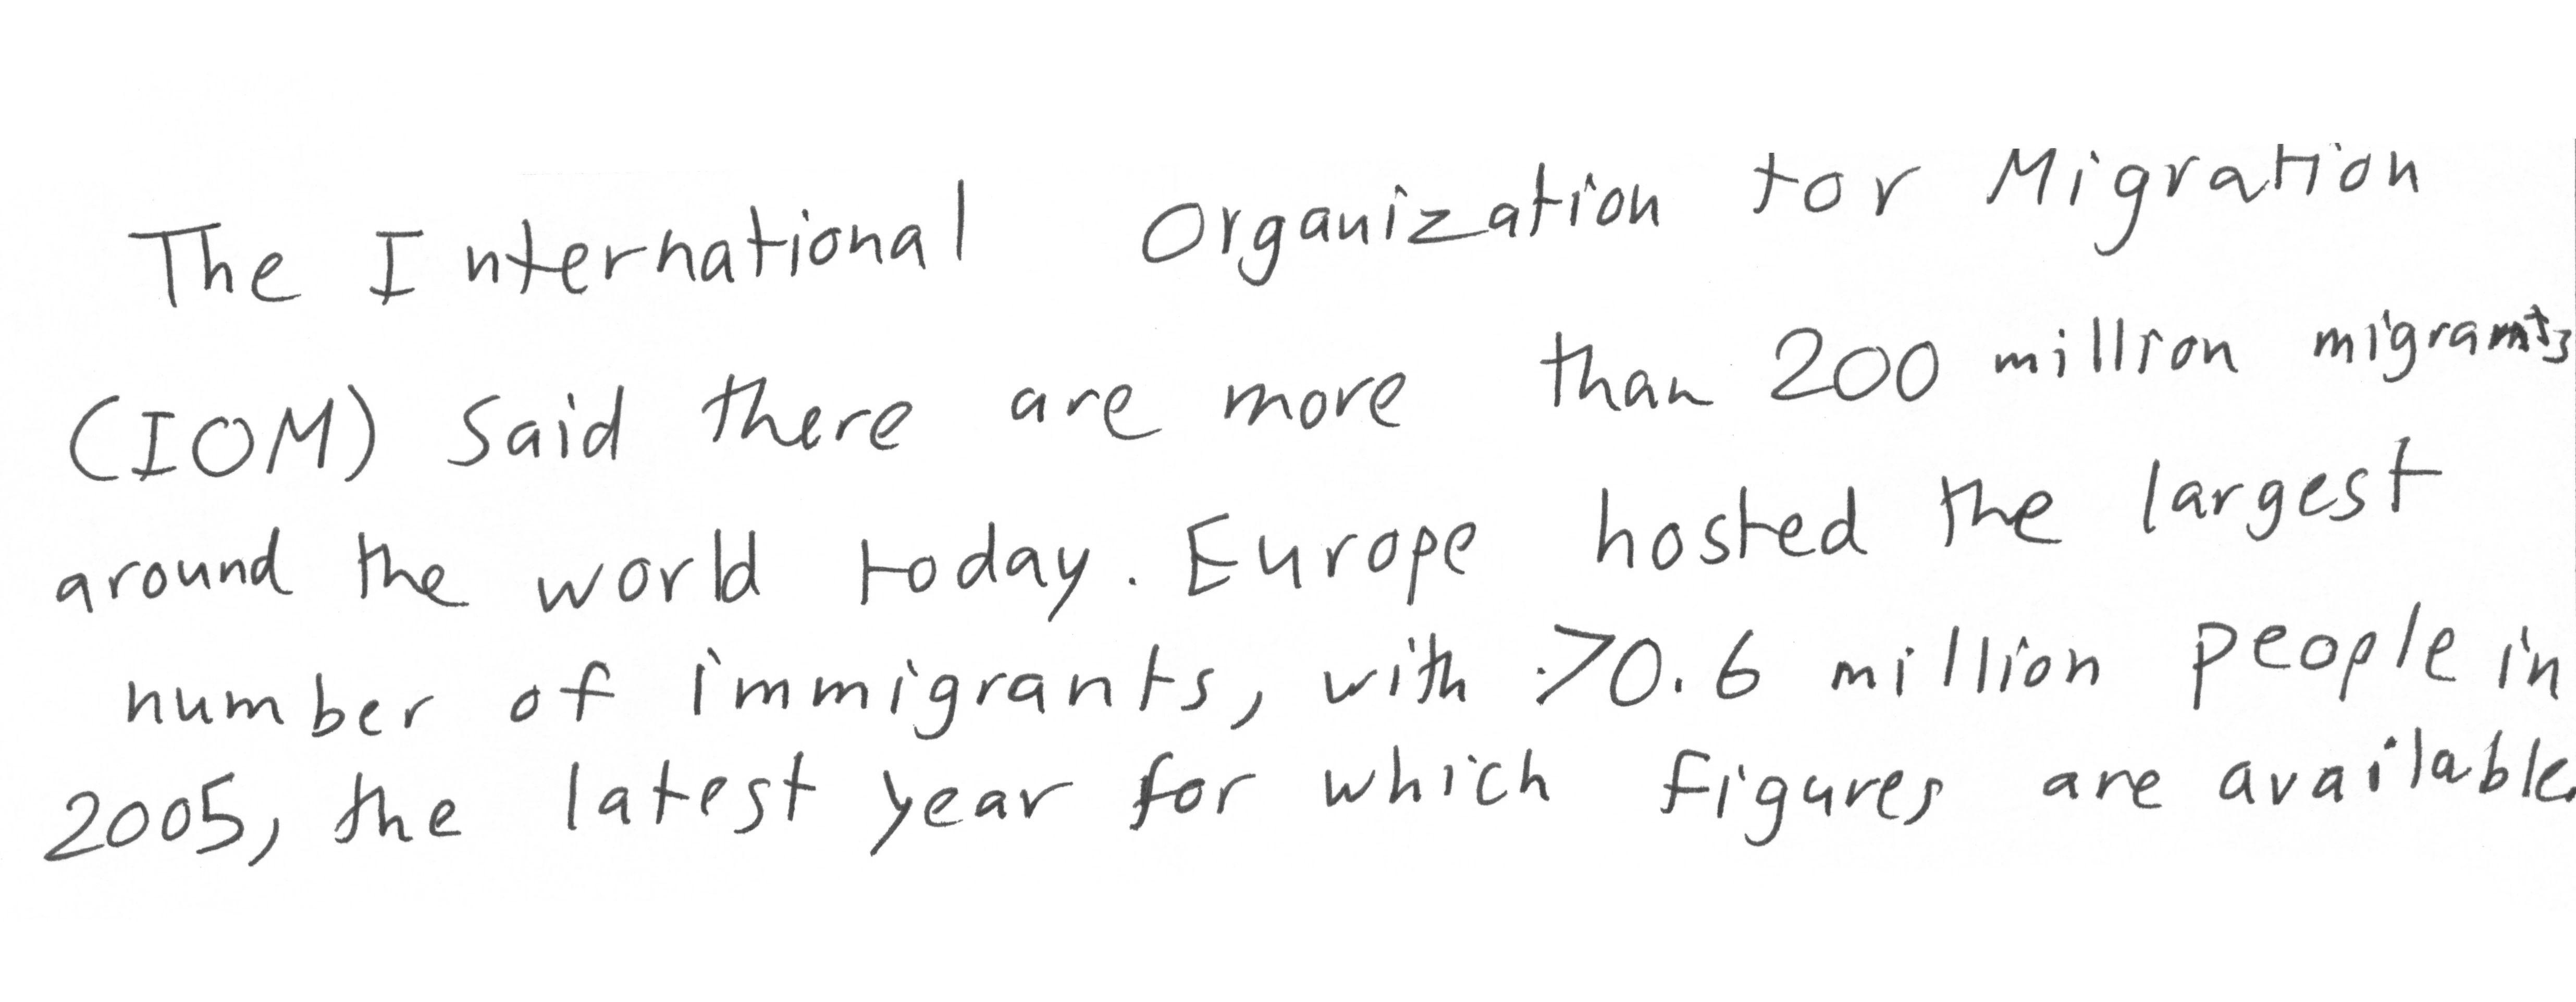 The International Organization for Migration
(IOM) said there are more than 200 million migrants
around the world today. Europe hosted the largest
number of immigrants, with 70.6 million people in
2005, the latest year for which figures are available.